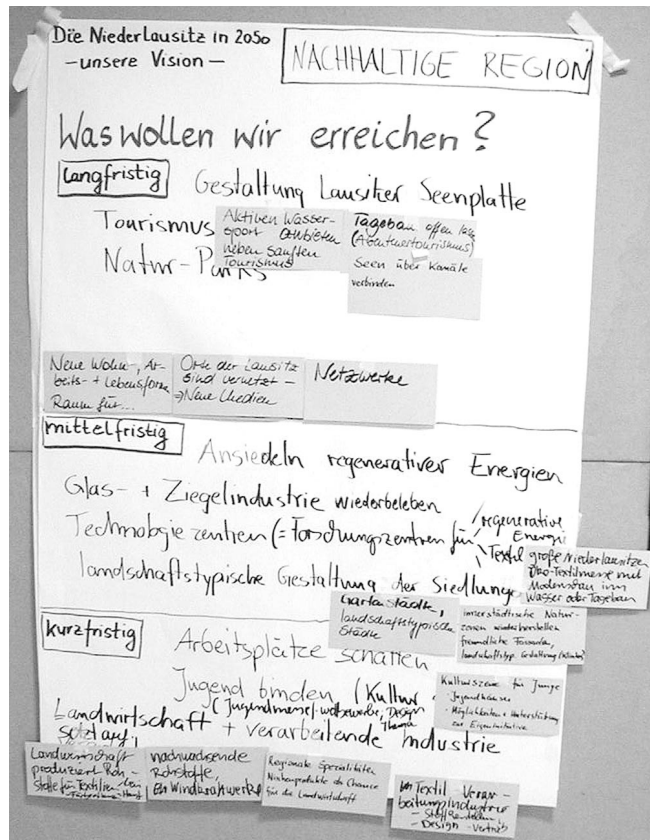 Die Niederlausitz in 2050
– unsere Vision –
NACHHALTIGE REGION
Was wollen wir erreichen?
langfristig
Gestaltung Lausitzer Seenplatte
Tourismus
Natur-Parks
Aktiven Wasser-
sport anbieten
neben sanften
Tourismus
Tagebau offen
(Abenteuertourismus)
Seen über Kanäle
verbinden
Neue Wohn-, Ar-
beits- + Lebensformen
Raum für...
Orte der Lausitz
sind vernetzt –
⇒ Neue Medien
Netzwerke
mittelfristig
Ansiedeln regenerativer Energien
Glas- + Ziegelindustrie wiederbeleben
Technologiezentren (= Forschungszentren für
regenerative
Energie
Textil
große Niederlausitzer
Öko-Textilmesse mit
Modenschau im
Wasser oder Tagebau
landschaftstypische Gestaltung der Siedlungen
Gartenstädte,
landschaftstypische
Städte
innerstädtische Natur-
zonen wiederherstellen
freundliche Fassaden,
landschaftstyp. Gestaltung
kurzfristig
Arbeitsplätze schaffen
Jugend binden (Kultur
(Jugendmesse), Design
Thema
Kulturszene für Junge
- Jugendhäuser
- Möglichkeiten + Unterstützung
zur Eigeninitiative
Landwirtschaft + verarbeitende Industrie
Landwirtschaft
produziert Roh-
stoffe für Textilien
nachwachsende
Rohstoffe,
Windkraftwerke
Regionale Spezialitäten
Nischenprodukte als Chance
für die Landwirtschaft
Textil Verar-
beitungsindustrie
- Design - Vertrieb